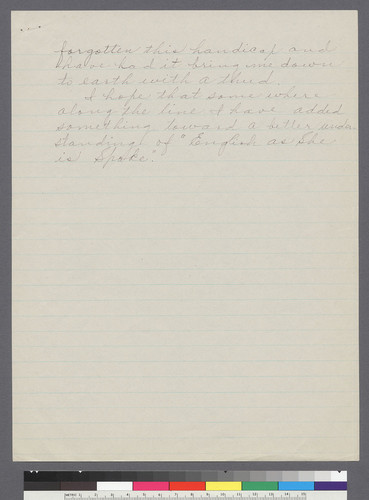 forgotten this handicap and
have had it bring me down
to earth with a thud.
I hope that some where
along the line I have added
something toward a better under
standing of "English as She
is Spoke".